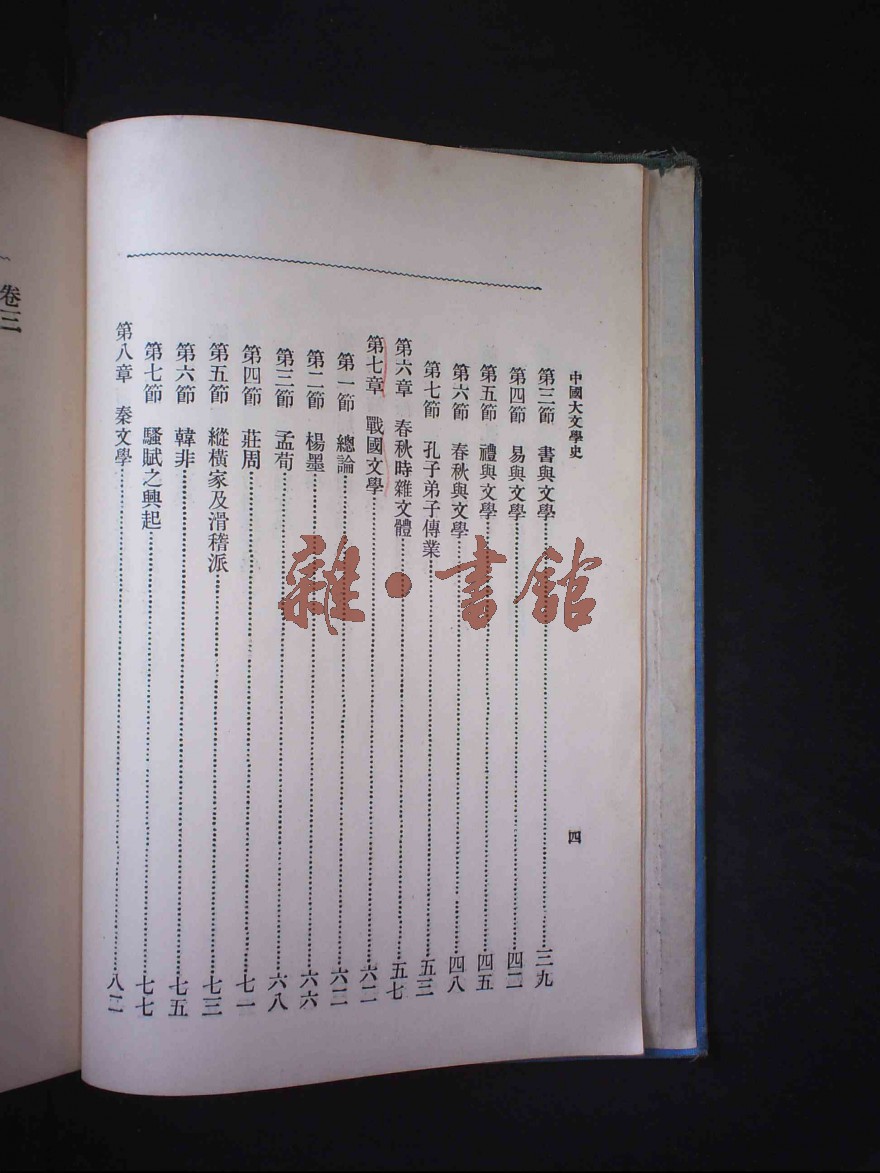 中國大文學史
四
第三節 書與文學……三九
第四節 易與文學……四二
第五節 禮與文學……四五
第六節 春秋與文學……四八
第七節 孔子弟子傳業……五三
第六章 春秋時雜文體……五七
第七章 戰國文學……六二
第一節 總論……六二
第二節 楊墨……六六
第三節 孟荀……六八
第四節 莊周……七一
第五節 縱橫家及滑稽派……七三
第六節 韓非……七五
第七節 騷賦之興起……七七
第八章 秦文學……八二
卷三
雜·書館